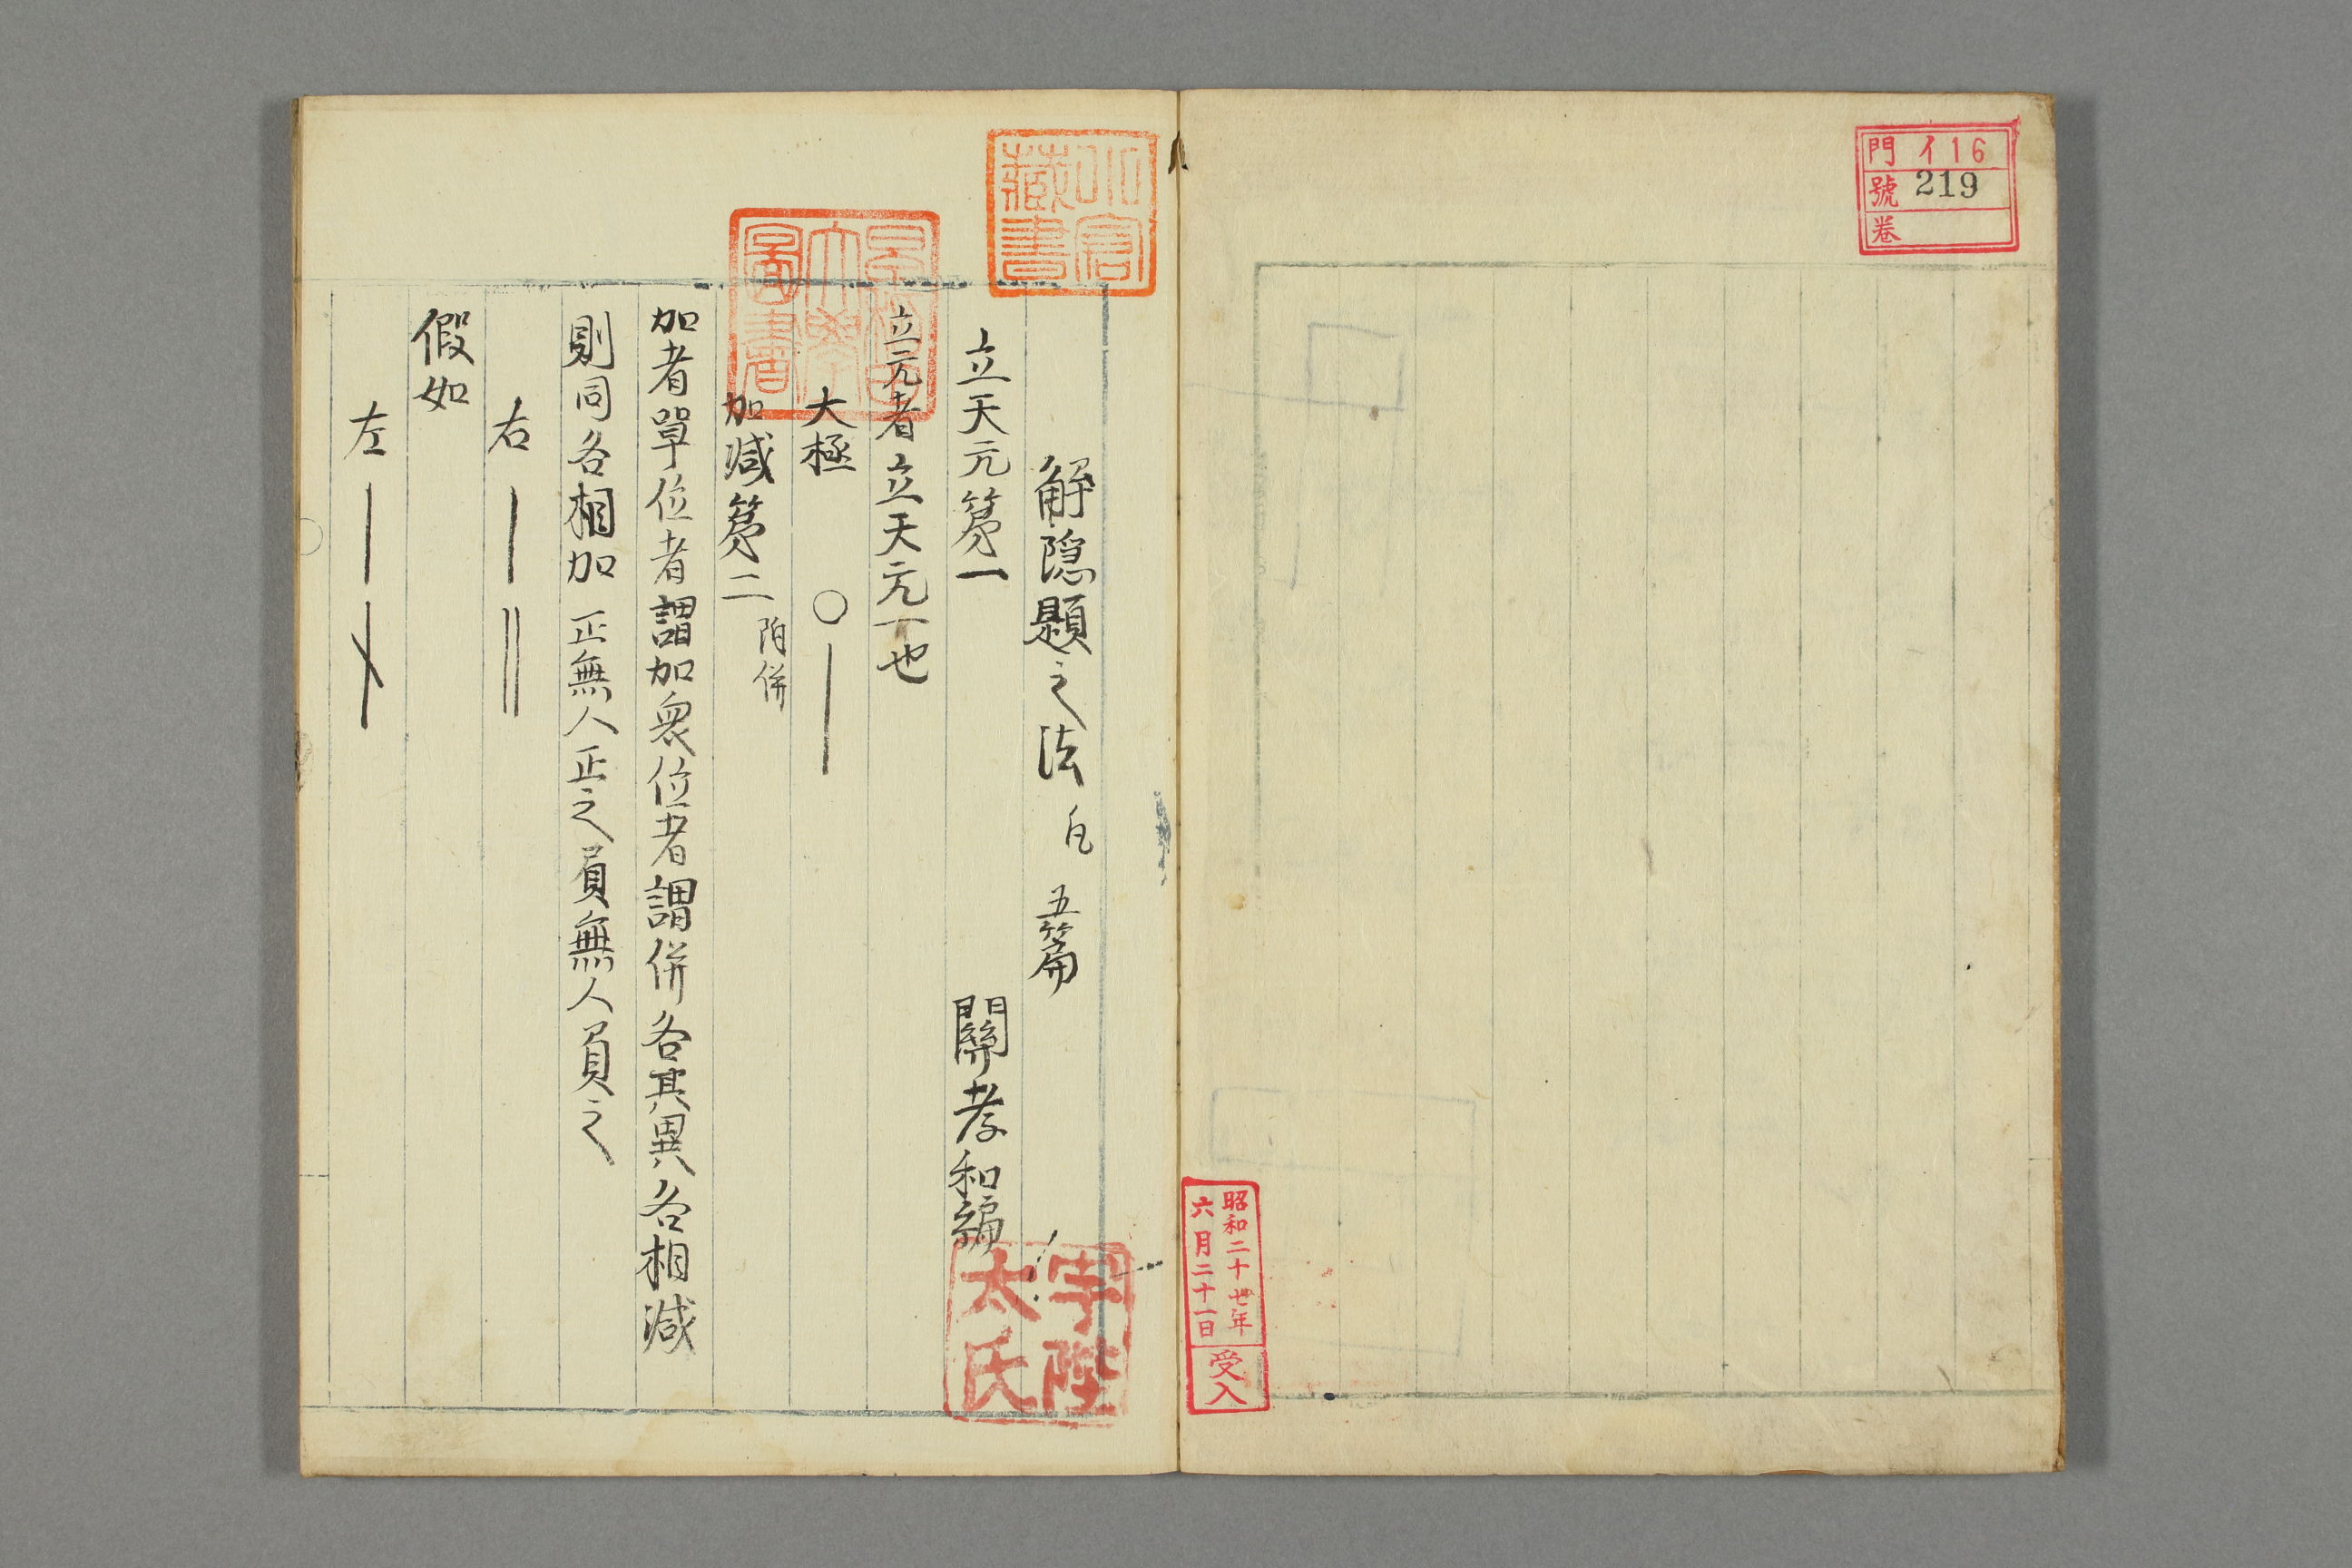 門 イ16
號 219
卷
昭和二十七年
六月二十一日
受入
解隠題之法 凡 五篇
立天元第一 關孝和編
立元者立天元一也
大極 〇 |
加減第二 附併
加者單位者謂加衆位者謂併各其異各相減
則同各相加 正無人正之負無人負之
右 | ||
假如
左 | \
小倉
藏書
早稻田
大學
圖書
宇陞
太氏